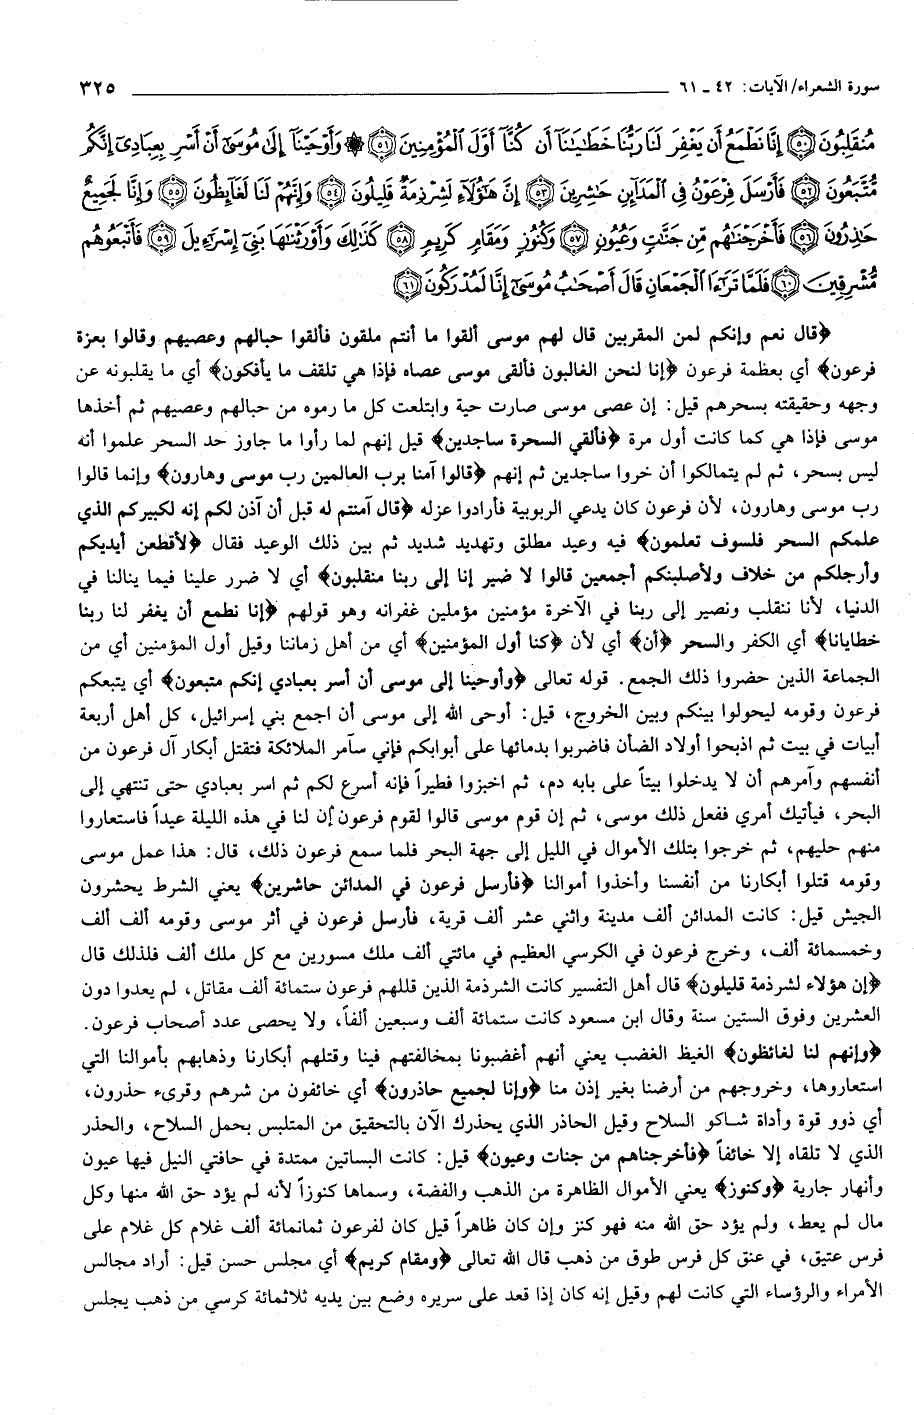 سورة الشعراء/ الآيات: ٤٢ ـ ٦١ ٣٢٥
مُنقَلِبُونَ ﴿٥٠﴾ إِنَّا نَطْمَعُ أَن يَغْفِرَ لَنَا رَبُّنَا خَطَايَانَا أَن كُنَّا أَوَّلَ الْمُؤْمِنِينَ ﴿٥١﴾ ۞ وَأَوْحَيْنَا إِلَى مُوسَى أَنْ أَسْرِ بِعِبَادِي إِنَّكُم
مُّتَّبَعُونَ ﴿٥٢﴾ فَأَرْسَلَ فِرْعَوْنُ فِي الْمَدَائِنِ حَاشِرِينَ ﴿٥٣﴾ إِنَّ هَؤُلَاءِ لَشِرْذِمَةٌ قَلِيلُونَ ﴿٥٤﴾ وَإِنَّهُمْ لَنَا لَغَائِظُونَ ﴿٥٥﴾ وَإِنَّا لَجَمِيعٌ
حَاذِرُونَ ﴿٥٦﴾ فَأَخْرَجْنَاهُم مِّن جَنَّاتٍ وَعُيُونٍ ﴿٥٧﴾ وَكُنُوزٍ وَمَقَامٍ كَرِيمٍ ﴿٥٨﴾ كَذَلِكَ وَأَوْرَثْنَاهَا بَنِي إِسْرَائِيلَ ﴿٥٩﴾ فَأَتْبَعُوهُم
مُّشْرِقِينَ ﴿٦٠﴾ فَلَمَّا تَرَاءَا الْجَمْعَانِ قَالَ أَصْحَابُ مُوسَى إِنَّا لَمُدْرَكُونَ ﴿٦١﴾
﴿قال نعم وإنكم لمن المقربين قال لهم موسى ألقوا ما أنتم ملقون فألقوا حبالهم وعصيهم وقالوا بعزة
فرعون﴾ أي بعظمة فرعون ﴿إنا لنحن الغالبون فألقى موسى عصاه فإذا هي تلقف ما يأفكون﴾ أي ما يقلبونه عن
وجهه وحقيقته بسحرهم قيل: إن عصى موسى صارت حية وابتلعت كل ما رموه من حبالهم وعصيهم ثم أخذها
موسى فإذا هي كما كانت أول مرة ﴿فألقي السحرة ساجدين﴾ قيل إنهم لما رأوا ما جاوز حد السحر علموا أنه
ليس بسحر، ثم لم يتمالكوا أن خروا ساجدين ثم إنهم ﴿قالوا آمنا برب العالمين رب موسى وهارون﴾ وإنما قالوا
رب موسى وهارون، لأن فرعون كان يدعي الربوبية فأرادوا عزله ﴿قال آمنتم له قبل أن آذن لكم إنه لكبيركم الذي
علمكم السحر فلسوف تعلمون﴾ فيه وعيد مطلق وتهديد شديد ثم بين ذلك الوعيد فقال ﴿لأقطعن أيديكم
وأرجلكم من خلاف ولأصلبنكم أجمعين قالوا لا ضير إنا إلى ربنا منقلبون﴾ أي لا ضرر علينا فيما ينالنا في
الدنيا، لأنا ننقلب ونصير إلى ربنا في الآخرة مؤمنين مؤملين غفرانه وهو قولهم ﴿إنا نطمع أن يغفر لنا ربنا
خطايانا﴾ أي الكفر والسحر ﴿أن﴾ أي لأن ﴿كنا أول المؤمنين﴾ أي من أهل زماننا وقيل أول المؤمنين أي من
الجماعة الذين حضروا ذلك الجمع. قوله تعالى ﴿وأوحينا إلى موسى أن أسر بعبادي إنكم متبعون﴾ أي يتبعكم
فرعون وقومه ليحولوا بينكم وبين الخروج، قيل: أوحى الله إلى موسى أن اجمع بني إسرائيل، كل أهل أربعة
أبيات في بيت ثم اذبحوا أولاد الضأن فاضربوا بدمائها على أبوابكم فإني سآمر الملائكة فتقتل أبكار آل فرعون من
أنفسهم وآمرهم أن لا يدخلوا بيتاً على بابه دم، ثم اخبزوا فطيراً فإنه أسرع لكم ثم اسر بعبادي حتى تنتهي إلى
البحر، فيأتيك أمري ففعل ذلك موسى، ثم إن قوم موسى قالوا لقوم فرعون إن لنا في هذه الليلة عيداً فاستعاروا
منهم حليهم، ثم خرجوا بتلك الأموال في الليل إلى جهة البحر فلما سمع فرعون ذلك، قال: هذا عمل موسى
وقومه قتلوا أبكارنا من أنفسنا وأخذوا أموالنا ﴿فأرسل فرعون في المدائن حاشرين﴾ يعني الشرط يحشرون
الجيش قيل: كانت المدائن ألف مدينة واثني عشر ألف قرية، فأرسل فرعون في أثر موسى وقومه ألف ألف
وخمسمائة ألف، وخرج فرعون في الكرسي العظيم في مائتي ألف ملك مسورين مع كل ملك ألف فلذلك قال
﴿إن هؤلاء لشرذمة قليلون﴾ قال أهل التفسير كانت الشرذمة الذين قللهم فرعون ستمائة ألف مقاتل، لم يعدوا دون
العشرين وفوق الستين سنة وقال ابن مسعود كانت ستمائة ألف وسبعين ألفاً، ولا يحصى عدد أصحاب فرعون.
﴿وإنهم لنا لغائظون﴾ الغيظ الغضب يعني أنهم أغضبونا بمخالفتهم فينا وقتلهم أبكارنا وذهابهم بأموالنا التي
استعاروها، وخروجهم من أرضنا بغير إذن منا ﴿وإنا لجميع حاذرون﴾ أي خائفون من شرهم وقرىء حذرون،
أي ذوو قوة وأداة شاكو السلاح وقيل الحاذر الذي يحذرك الآن بالتحقيق من المتلبس بحمل السلاح، والحذر
الذي لا تلقاه إلا خائفاً ﴿فأخرجناهم من جنات وعيون﴾ قيل: كانت البساتين ممتدة في حافتي النيل فيها عيون
وأنهار جارية ﴿وكنوز﴾ يعني الأموال الظاهرة من الذهب والفضة، وسماها كنوزاً لأنه لم يؤد حق الله منها وكل
مال لم يعط، ولم يؤد حق الله منه فهو كنز وإن كان ظاهراً قيل كان لفرعون ثمانمائة ألف غلام كل غلام على
فرس عتيق، في عنق كل فرس طوق من ذهب قال الله تعالى ﴿ومقام كريم﴾ أي مجلس حسن قيل: أراد مجالس
الأمراء والرؤساء التي كانت لهم وقيل إنه كان إذا قعد على سريره وضع بين يديه ثلاثمائة كرسي من ذهب يجلس